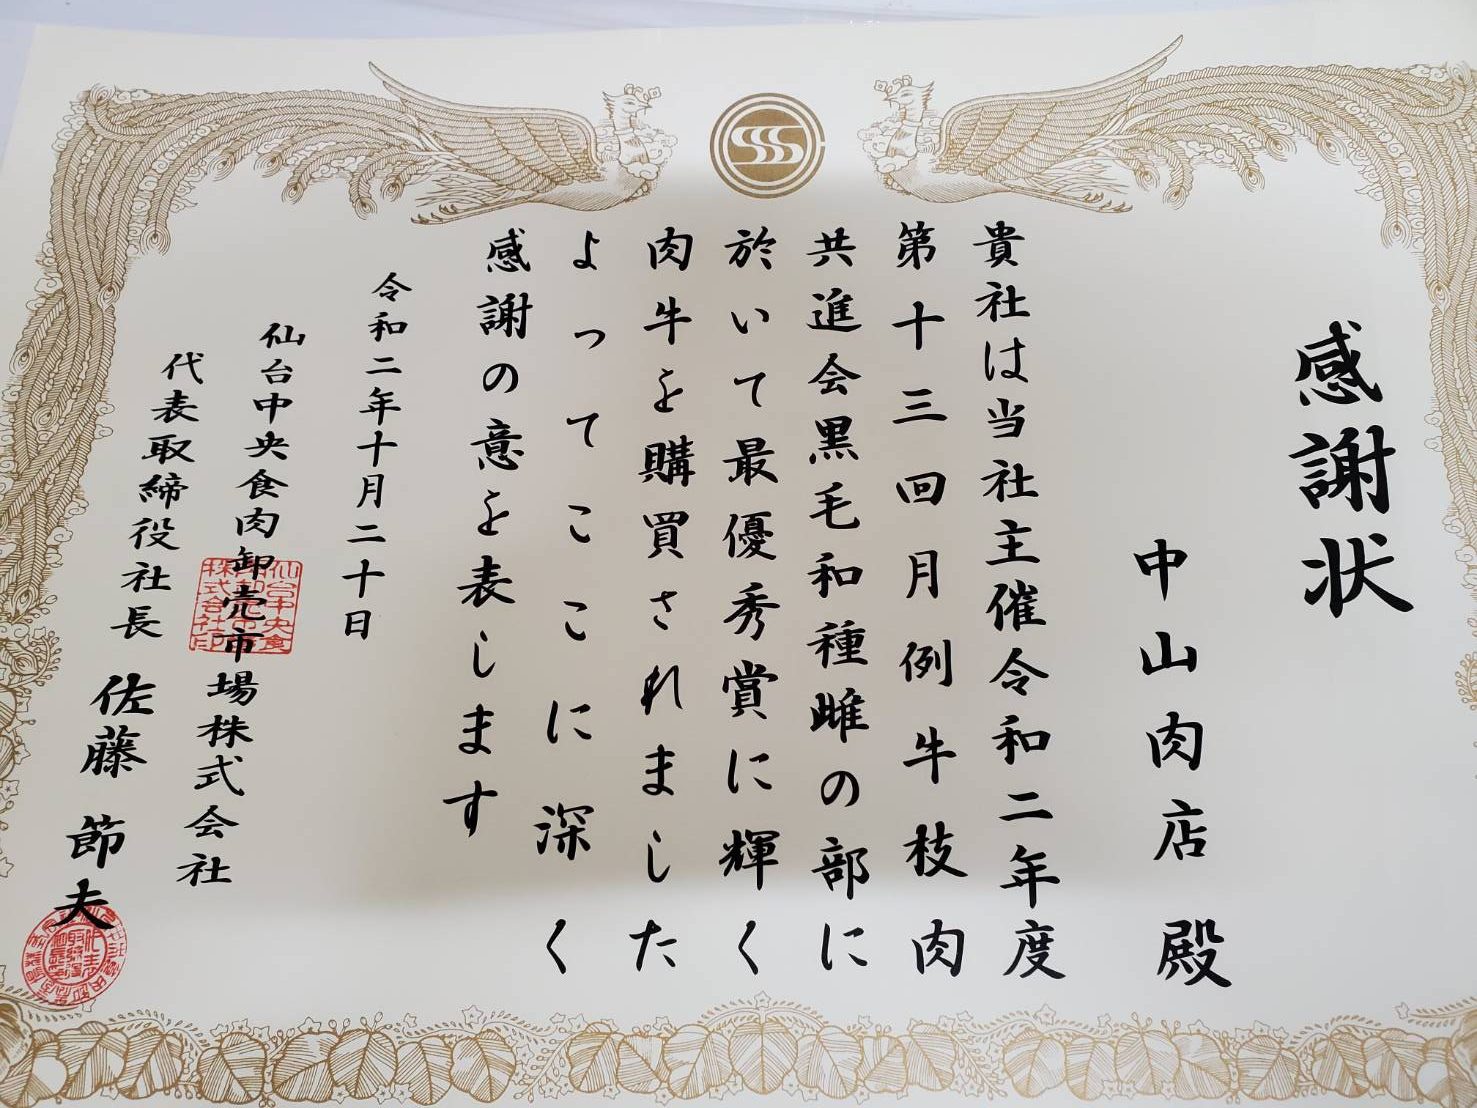 感謝状
中山肉店 殿
貴社は当社主催令和二年度
第十三回月例牛枝肉
共進会黒毛和種雌の部に
於いて最優秀賞に輝く
肉牛を購買されました
よってここに深く
感謝の意を表します
令和二年十月二十日
仙台中央食肉卸売市場株式会社
代表取締役社長 佐藤節夫